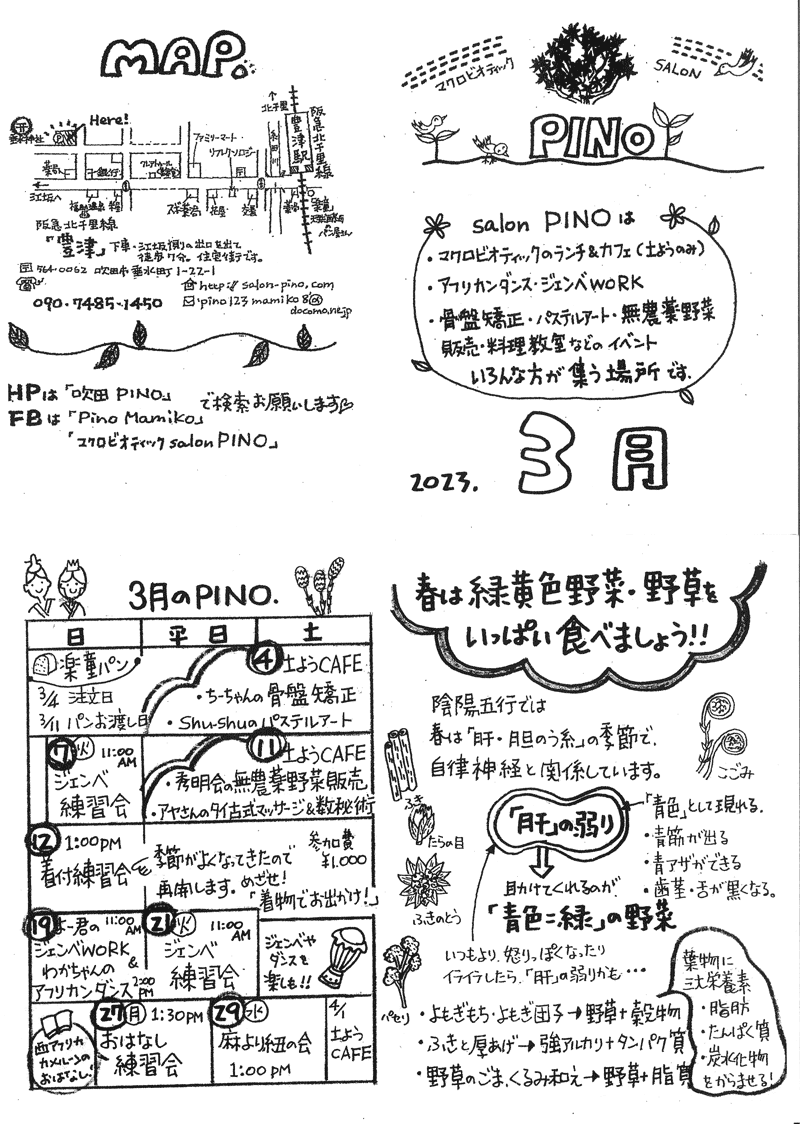 MAP.
Here!
北千里
豊津駅
阪急北千里線
ファミリーマート
リフレクソロジー
糸田川
薬局
銀行
江坂へ
スギ薬局
花屋
交番
パン屋さん
阪急北千里線
「豊津」下車・江坂側の出口を出て
徒歩7分。住宅街です。
564-0062 吹田市垂水町1-22-1
http://salon-pino.com
090-7485-1450
pino123mamiko8@
docomo.ne.jp
HPは「吹田 PINO」
FBは「Pino Mamiko」
「マクロビオティック salon PINO」
で検索お願いします
マクロビオティック
SALON
PINO
salon PINOは
・マクロビオティックのランチ&カフェ(土ようのみ)
・アフリカンダンス・ジェンベWORK
・骨盤矯正・パステルアート・無農薬野菜
販売・料理教室などのイベント
いろんな方が集う場所です。
2023. 3月
3月のPINO.
日 平日 土
楽童パン
3/4 注文日
3/11 パンお渡し日
4 土ようCAFE
・ちーちゃんの骨盤矯正
・Shu-shuのパステルアート
7 火 11:00AM
ジェンベ
練習会
11 土ようCAFE
・秀明会の無農薬野菜販売
・アヤさんのタイ古式マッサージ&数秘術
12 1:00PM
着付練習会
季節がよくなってきたので
再開します。めざせ!
「着物でお出かけ!」
参加費
¥1,000
19 よー君の 11:00AM
ジェンベWORK
&
わかちゃんの
アフリカンダンス 2:00PM
21 火 11:00AM
ジェンベ
練習会
ジェンベや
ダンスを
楽しも!!
西アフリカ
カメルーンの
おはなし!
27 月 1:30PM
おはなし
練習会
29 水
麻より紐の会
1:00PM
4/1
土よう
CAFE
春は緑黄色野菜・野草を
いっぱい食べましょう!!
陰陽五行では
春は「肝・胆のう系」の季節で、
自律神経と関係しています。
こごみ
ふき
たらの目
ふきのとう
パセリ
「肝」の弱り
「青色」として現れる。
・青筋が出る
・青アザができる
・歯茎・舌が黒くなる。
助けてくれるのが、
「青色=緑」の野菜
いつもより、怒りっぽくなったり
イライラしたら、「肝」の弱りかも…
・よもぎもち・よもぎ団子→野草+穀物
・ふきと厚あげ→強アルカリ+タンパク質
・野草のごま、くるみ和え→野草+脂質
葉物に
三大栄養素
・脂肪
・たんぱく質
・炭水化物
をからませる!